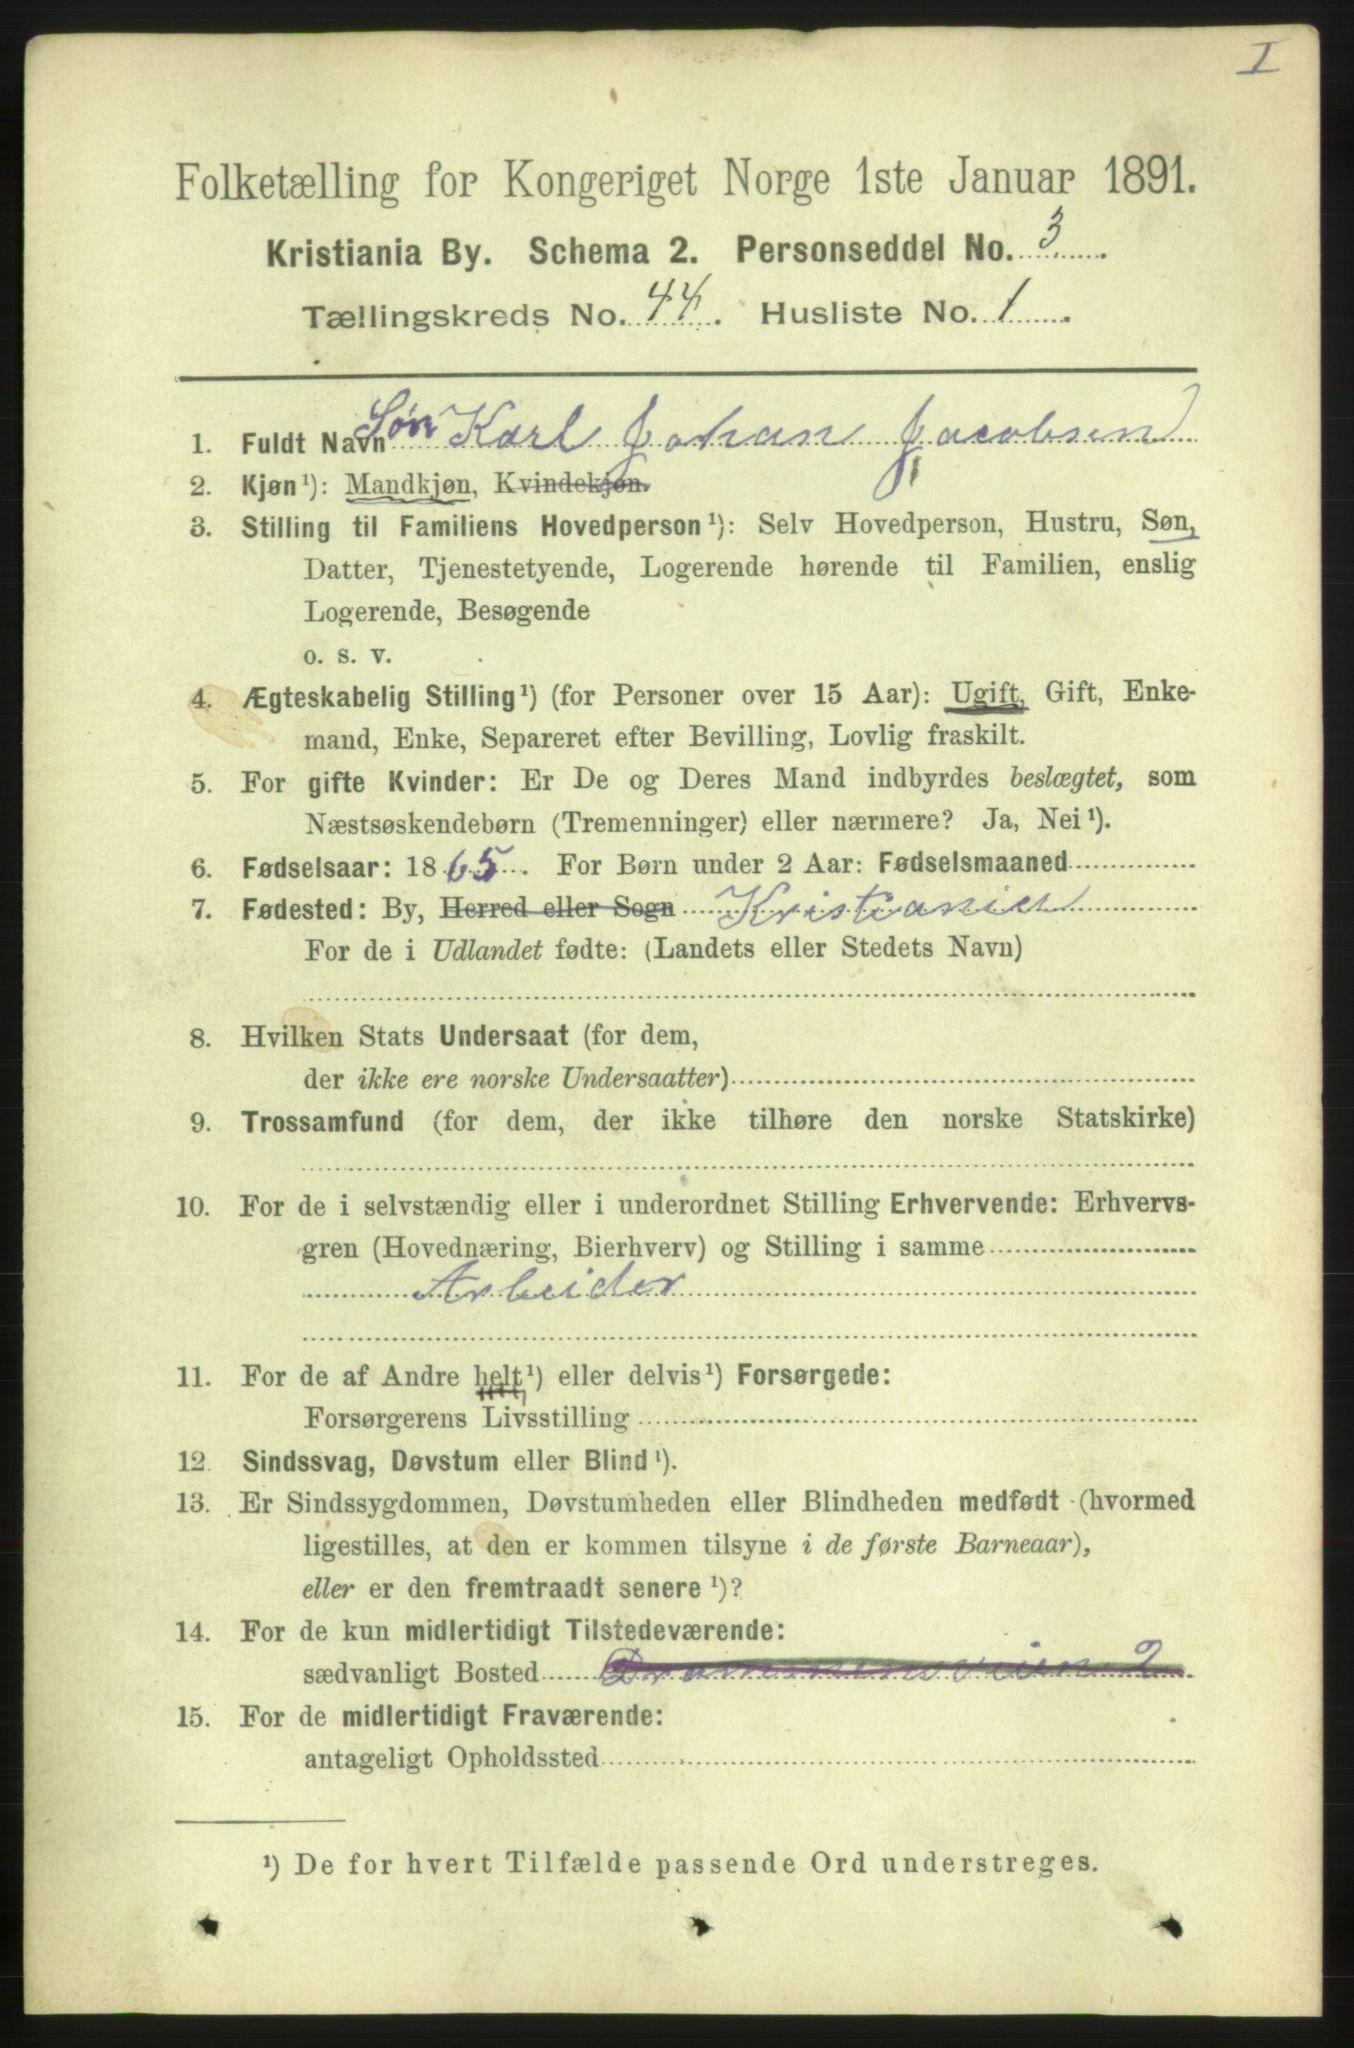 I
Folketælling for Kongeriget Norge 1ste Januar 1891.
Kristiania By. Schema 2. Personseddel No. 3.
Tællingskreds No. 44. Husliste No. 1.
1. Fuldt Navn Søn Karl Johan Jacobsen
2. Kjøn¹): Mandkjøn, Kvindekjøn.
3. Stilling til Familiens Hovedperson¹): Selv Hovedperson, Hustru, Søn,
Datter, Tjenestetyende, Logerende hørende til Familien, enslig
Logerende, Besøgende
o. s. v.
4. Ægteskabelig Stilling¹) (for Personer over 15 Aar): Ugift, Gift, Enke-
mand, Enke, Separeret efter Bevilling, Lovlig fraskilt.
5. For gifte Kvinder: Er De og Deres Mand indbyrdes beslægtet, som
Næstsøskendebørn (Tremenninger) eller nærmere? Ja, Nei¹).
6. Fødselsaar: 1865. For Børn under 2 Aar: Fødselsmaaned
7. Fødested: By, Herred eller Sogn Kristiania
For de i Udlandet fødte: (Landets eller Stedets Navn)
8. Hvilken Stats Undersaat (for dem,
der ikke ere norske Undersaatter)
9. Trossamfund (for dem, der ikke tilhøre den norske Statskirke)
10. For de i selvstændig eller i underordnet Stilling Erhvervende: Erhvervs-
gren (Hovednæring, Bierhverv) og Stilling i samme
Arbeider
11. For de af Andre helt¹) eller delvis¹) Forsørgede:
Forsørgerens Livsstilling
12. Sindssvag, Døvstum eller Blind¹).
13. Er Sindssygdommen, Døvstumheden eller Blindheden medfødt (hvormed
ligestilles, at den er kommen tilsyne i de første Barneaar),
eller er den fremtraadt senere¹)?
14. For de kun midlertidigt Tilstedeværende:
sædvanligt Bosted Drammensveien 2.
15. For de midlertidigt Fraværende:
antageligt Opholdssted
¹) De for hvert Tilfælde passende Ord understreges.